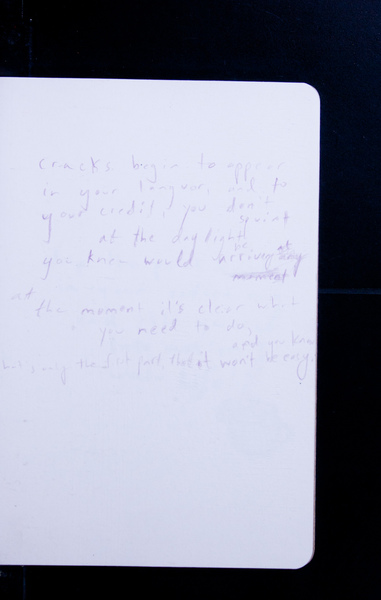 Cracks begin to appear
in your languor, and to
your credit, you don't
squint
at the daylight
you knew would be arriving at any
moment
at
the moment it's clear what
you need to do,
and you know
only the first part, that it won't be easy.